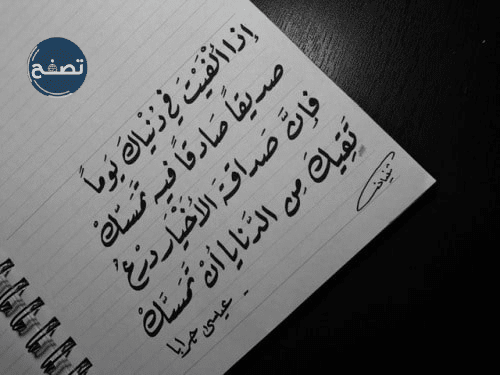 تصفح
إِذا ألْفَيْتَ في دُنْياكَ يَوماً
صديقاً صَادقاً فيه تمَسَّكْ
فإنَّ صَداقةَ الأَخْيَار دِرْعٌ
تَقيكَ مِن الدَّنايا أنْ تمَسَّكْ
- عيسى جرابا